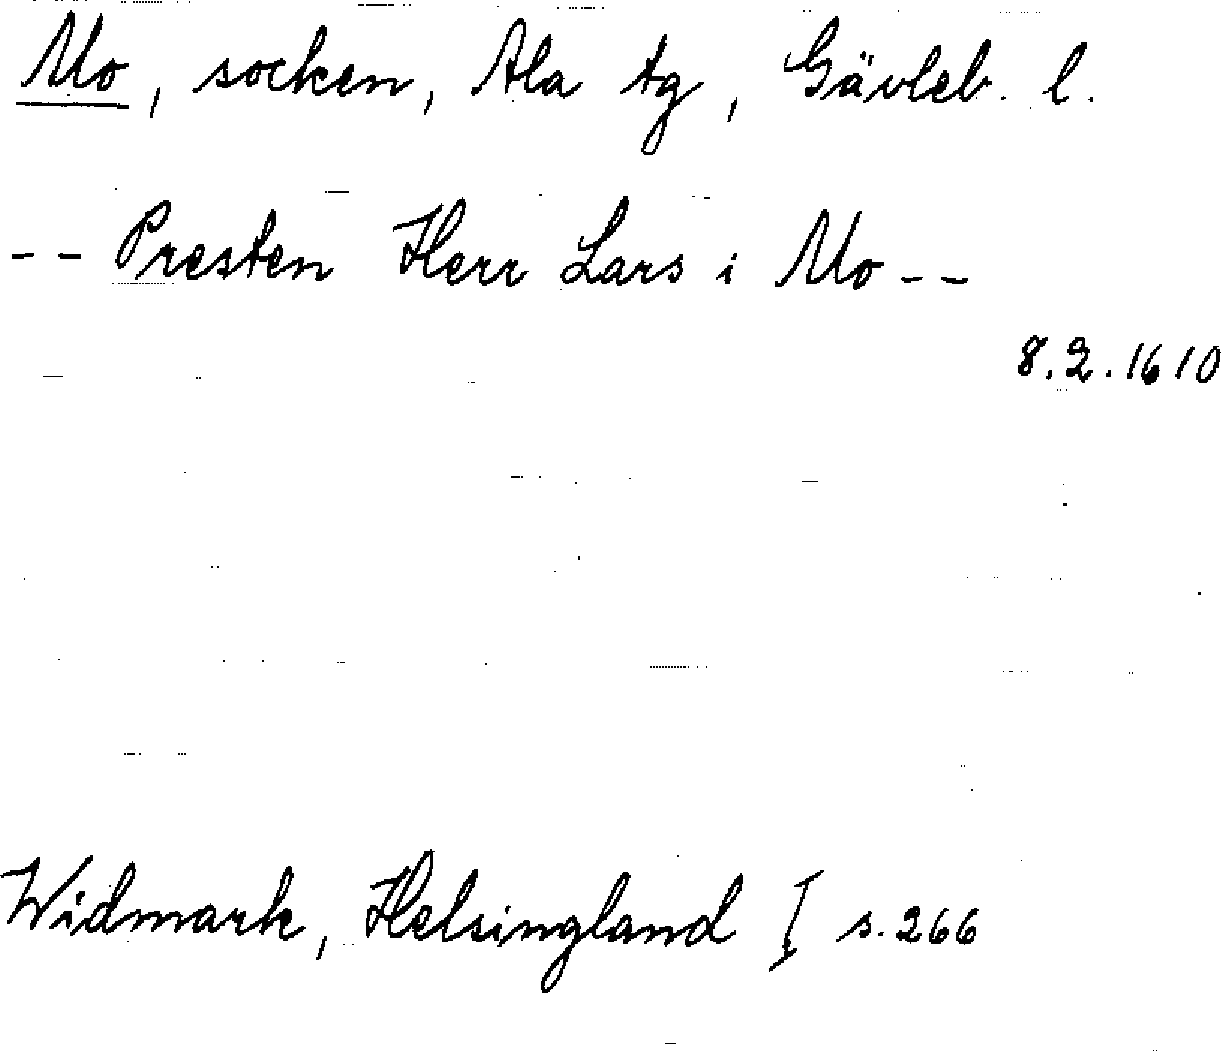 Mo, socken, Ala tg, Gävleb. l.
-- Presten Herr Lars i Mo --
8.2.1610
Widmark, Helsingland I s. 266